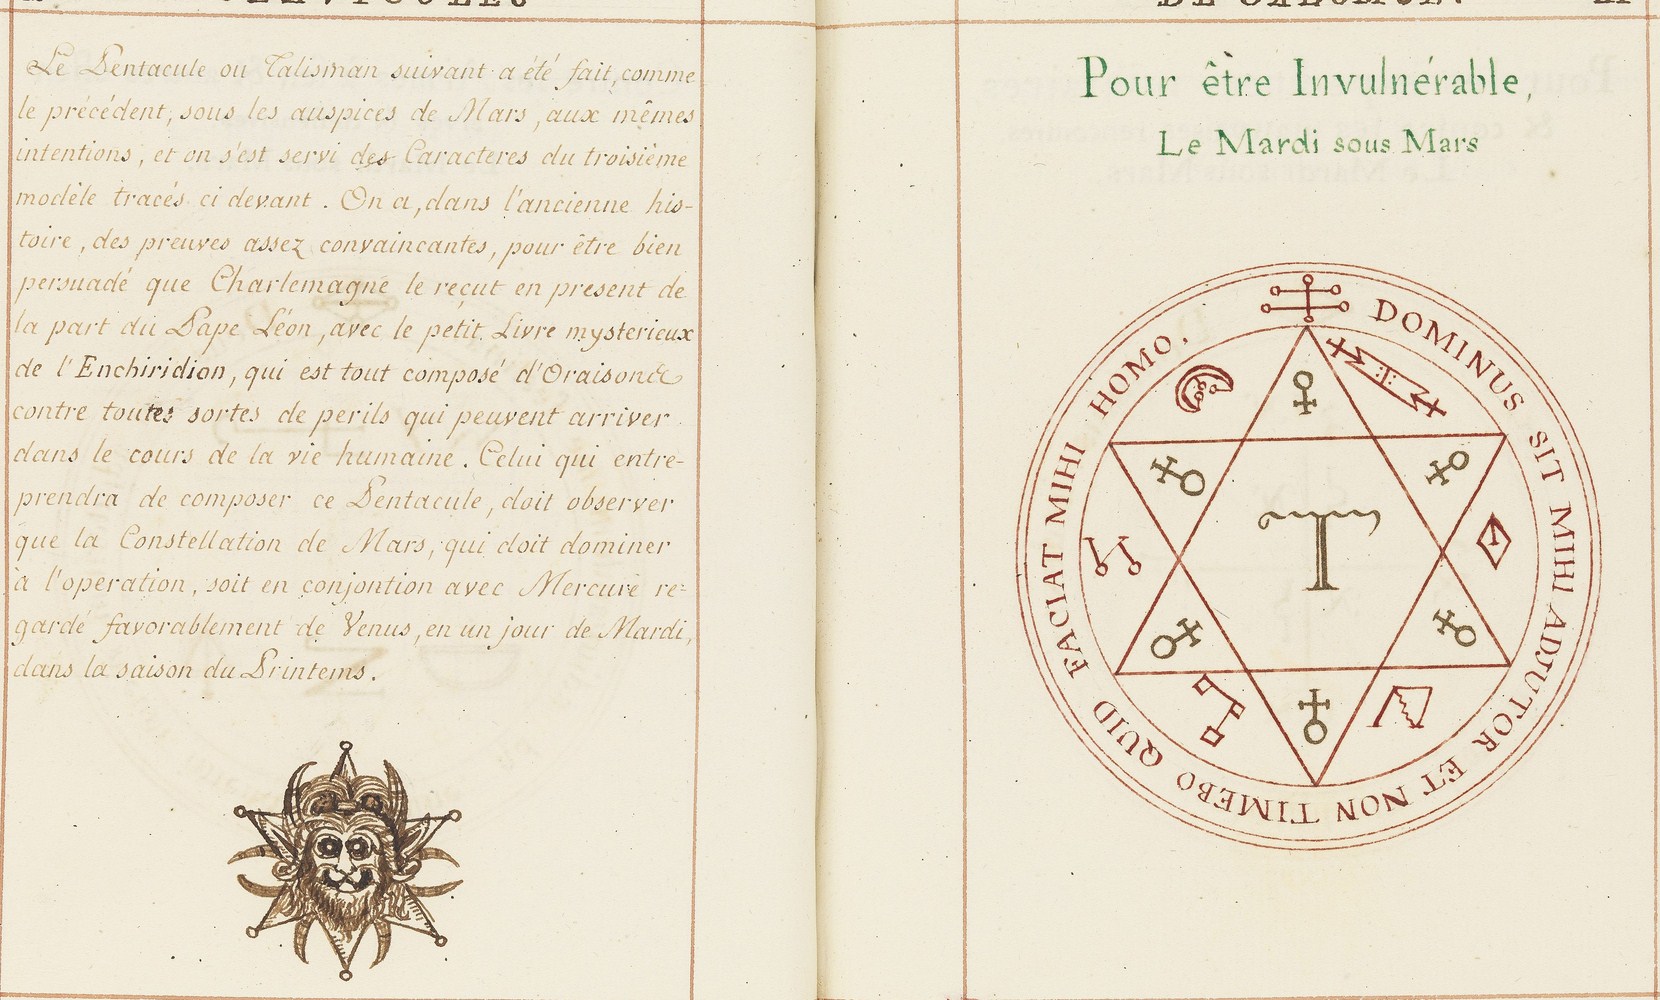 Le Pentacule ou Talisman suivant a été fait, comme
le précédent, sous les auspices de Mars, aux mêmes
intentions, et on s'est servi des Caracteres du troisième
modèle tracés ci devant. On a, dans l'ancienne his-
toire, des preuves assez convaincantes, pour être bien
persuadé que Charlemagne le reçut en present de
la part du Pape Léon, avec le petit Livre mysterieux
de l'Enchiridion, qui est tout composé d'Oraisons
contre toutes sortes de perils qui peuvent arriver
dans le cours de la vie humaine. Celui qui entre-
prendra de composer ce Pentacule, doit observer
que la Constellation de Mars, qui doit dominer
à l'operation, soit en conjontion avec Mercure re-
gardé favorablement de Venus, en un jour de Mardi,
dans la saison du Printems.
Pour être Invulnérable,
Le Mardi sous Mars
DOMINUS SIT MIHI ADJUTOR ET NON TIMEBO QUID FACIAT MIHI HOMO.
T